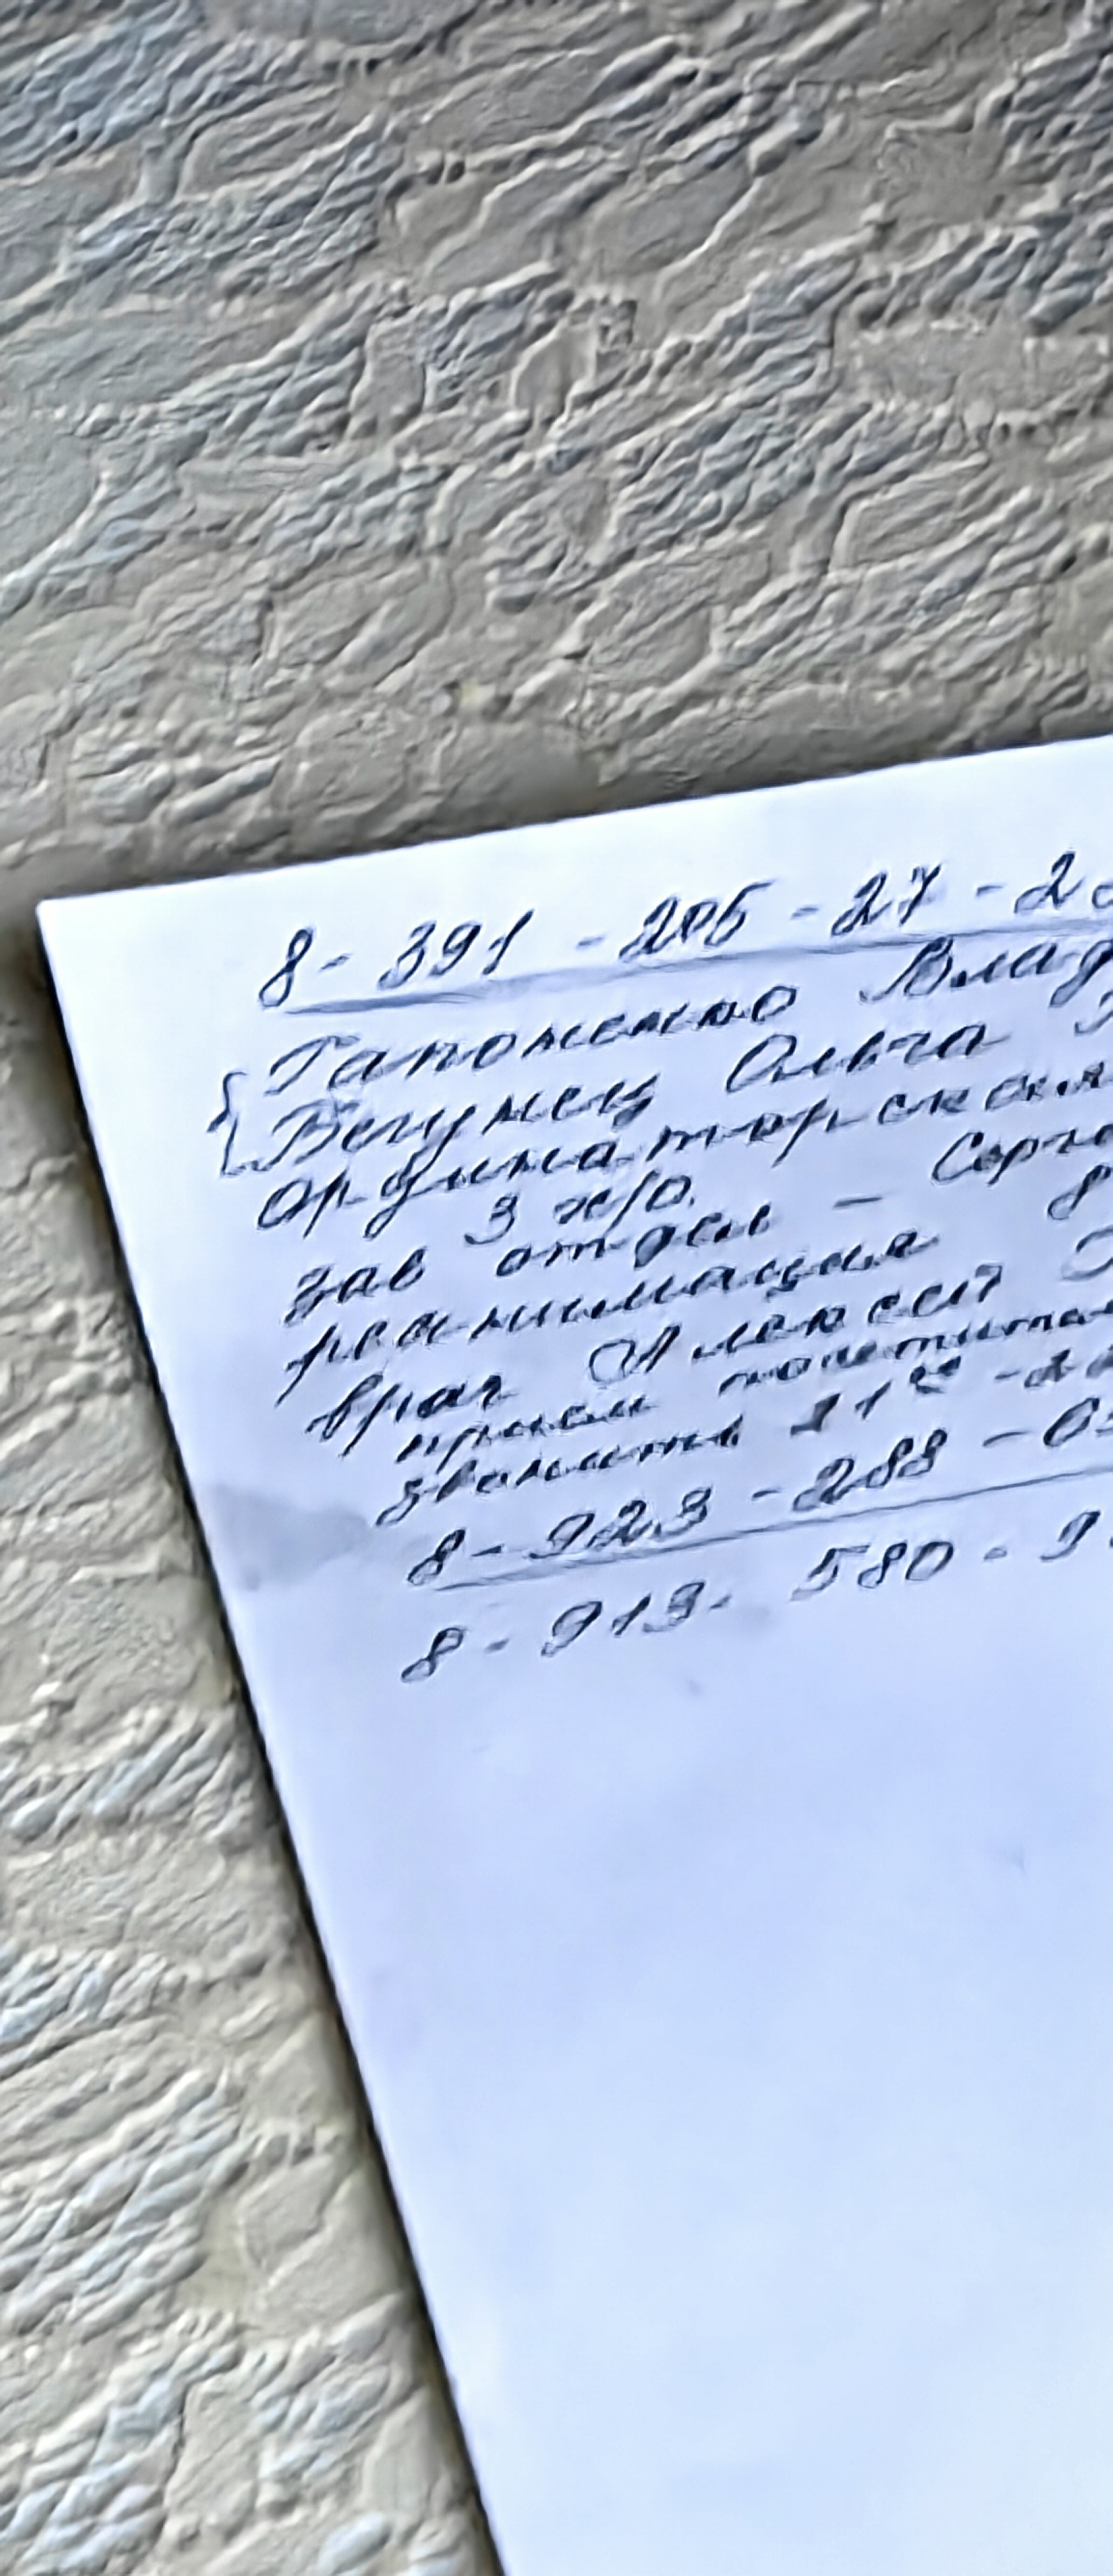 8- 391 - 205 - 27 - 2
Гапоненко Влад
Бегунец Ольга
Ординаторская
3 х/о.
зав отдел - Серге
реанимация 8
врач Алексей
прием
звонить 11⁰⁰ -
8- 923 - 288 - 0
8 - 913 - 580 - 9